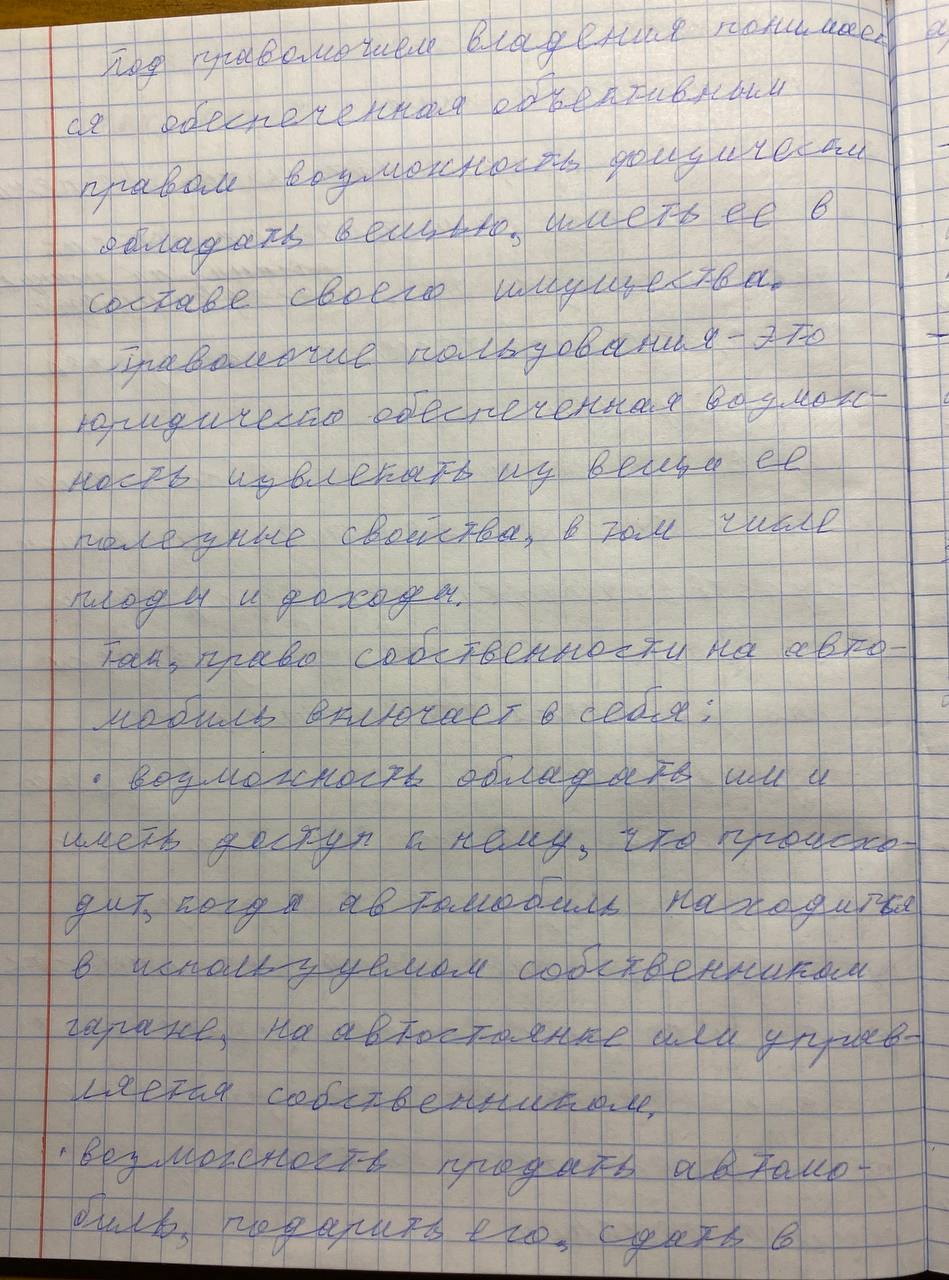 Под правомочием владения понимает
ся обеспеченная объективным
правом возможность физически
обладать вещью, иметь ее в
составе своего имущества.
Правомочие пользования - это
юридически обеспеченная возмож-
ность извлекать из вещи ее
полезные свойства, в том числе
плоды и доходы.
Так, право собственности на авто-
мобиль включает в себя:
• возможность обладать им и
иметь доступ к нему, что происхо-
дит, когда автомобиль находится
в используемом собственником
гараже, на автостоянке или управ-
ляется собственником.
• возможность продать автомо-
биль, подарить его, сдать в